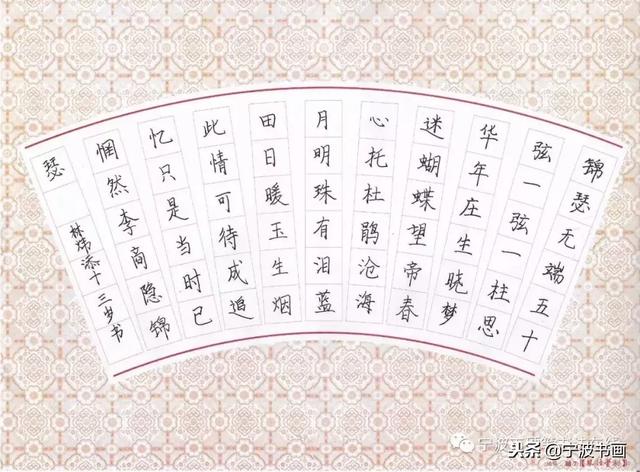 锦瑟无端五十
弦一弦一柱思
华年庄生晓梦
迷蝴蝶望帝春
心托杜鹃沧海
月明珠有泪蓝
田日暖玉生烟
此情可待成追
忆只是当时已
惘然李商隐锦
瑟
林炜添十三岁书
头条@宁波书画